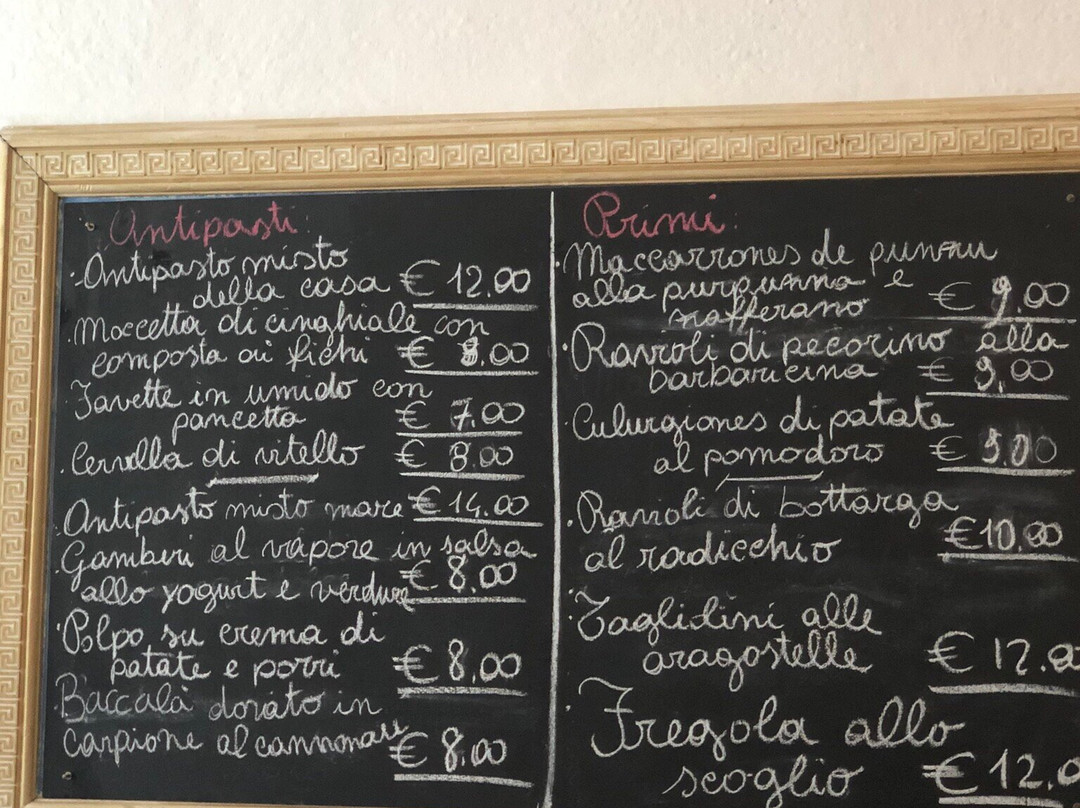 Antipasti
Antipasto misto
della casa € 12.00
Moccetta di cinghiale con
composta di fichi € 8.00
Favette in umido con
pancetta € 7.00
Cervella di vitello € 8.00
Antipasto misto mare € 14.00
Gamberi al vapore in salsa
allo yogurt e verdure € 8.00
Polpo su crema di
patate e porri € 8.00
Baccalà dorato in
carpione al cannonau € 8.00
Primi
Maccarrones de punzu
alla purpuzza e
zafferano € 9.00
Ravioli di pecorino alla
barbaricina € 9,00
Culurgiones di patate
al pomodoro € 9.00
Ravioli di bottarga
al radicchio € 10.00
Tagliolini alle
aragostelle € 12.0
Fregola allo
scoglio € 12.0